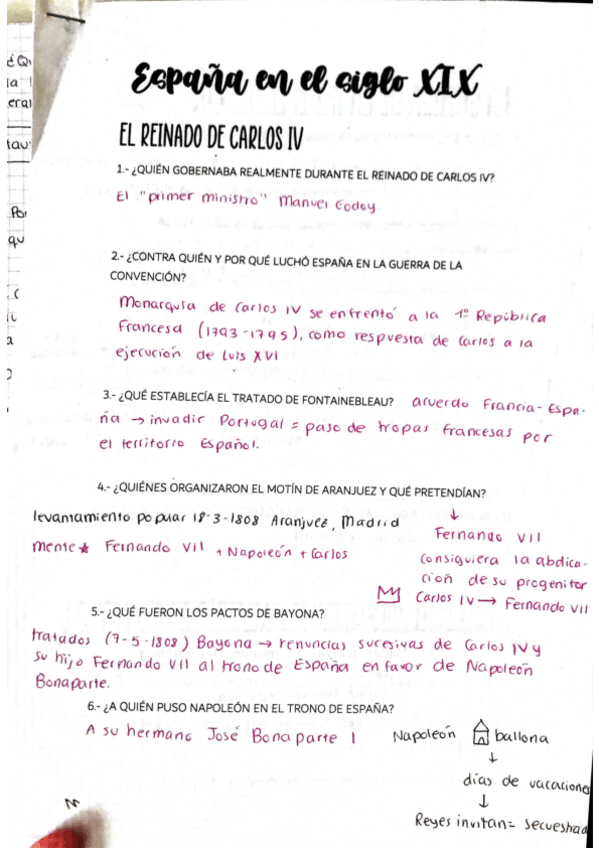 ¿Qu
a
eral
tav
Por
qu
a
España en el siglo XIX
EL REINADO DE CARLOS IV
1.- ¿QUIÉN GOBERNABA REALMENTE DURANTE EL REINADO DE CARLOS IV?
El "primer ministro" Manuel Godoy.
2.- ¿CONTRA QUIÉN Y POR QUÉ LUCHÓ ESPAÑA EN LA GUERRA DE LA
CONVENCIÓN?
Monarquía de Carlos IV se enfrentó a la 1º República
Francesa (1793-1795), como respuesta de Carlos a la
ejecución de Luis XVI
3.- ¿QUÉ ESTABLECÍA EL TRATADO DE FONTAINEBLEAU? acuerdo Francia-Espa-
ña → invadir Portugal = paso de tropas francesas por
el territorio Español.
4.- ¿QUIÉNES ORGANIZARON EL MOTÍN DE ARANJUEZ Y QUÉ PRETENDÍAN?
levantamiento popular 18-3-1808 Aranjuez, Madrid
mente ★ Fernando VII + Napoleón + Carlos
↓
Fernando VII
consiguiera la abdica-
ción de su progenitor
Carlos IV → Fernando VII
5.- ¿QUÉ FUERON LOS PACTOS DE BAYONA?
tratados (7-5-1808) Bayona → renuncias sucesivas de Carlos IV y
su hijo Fernando VII al trono de España en favor de Napoleón
Bonaparte.
6.- ¿A QUIÉN PUSO NAPOLEÓN EN EL TRONO DE ESPAÑA?
A su hermano José Bonaparte I
Napoleón ballona
↓
días de vacacione
↓
Reyes invitan = secueshad